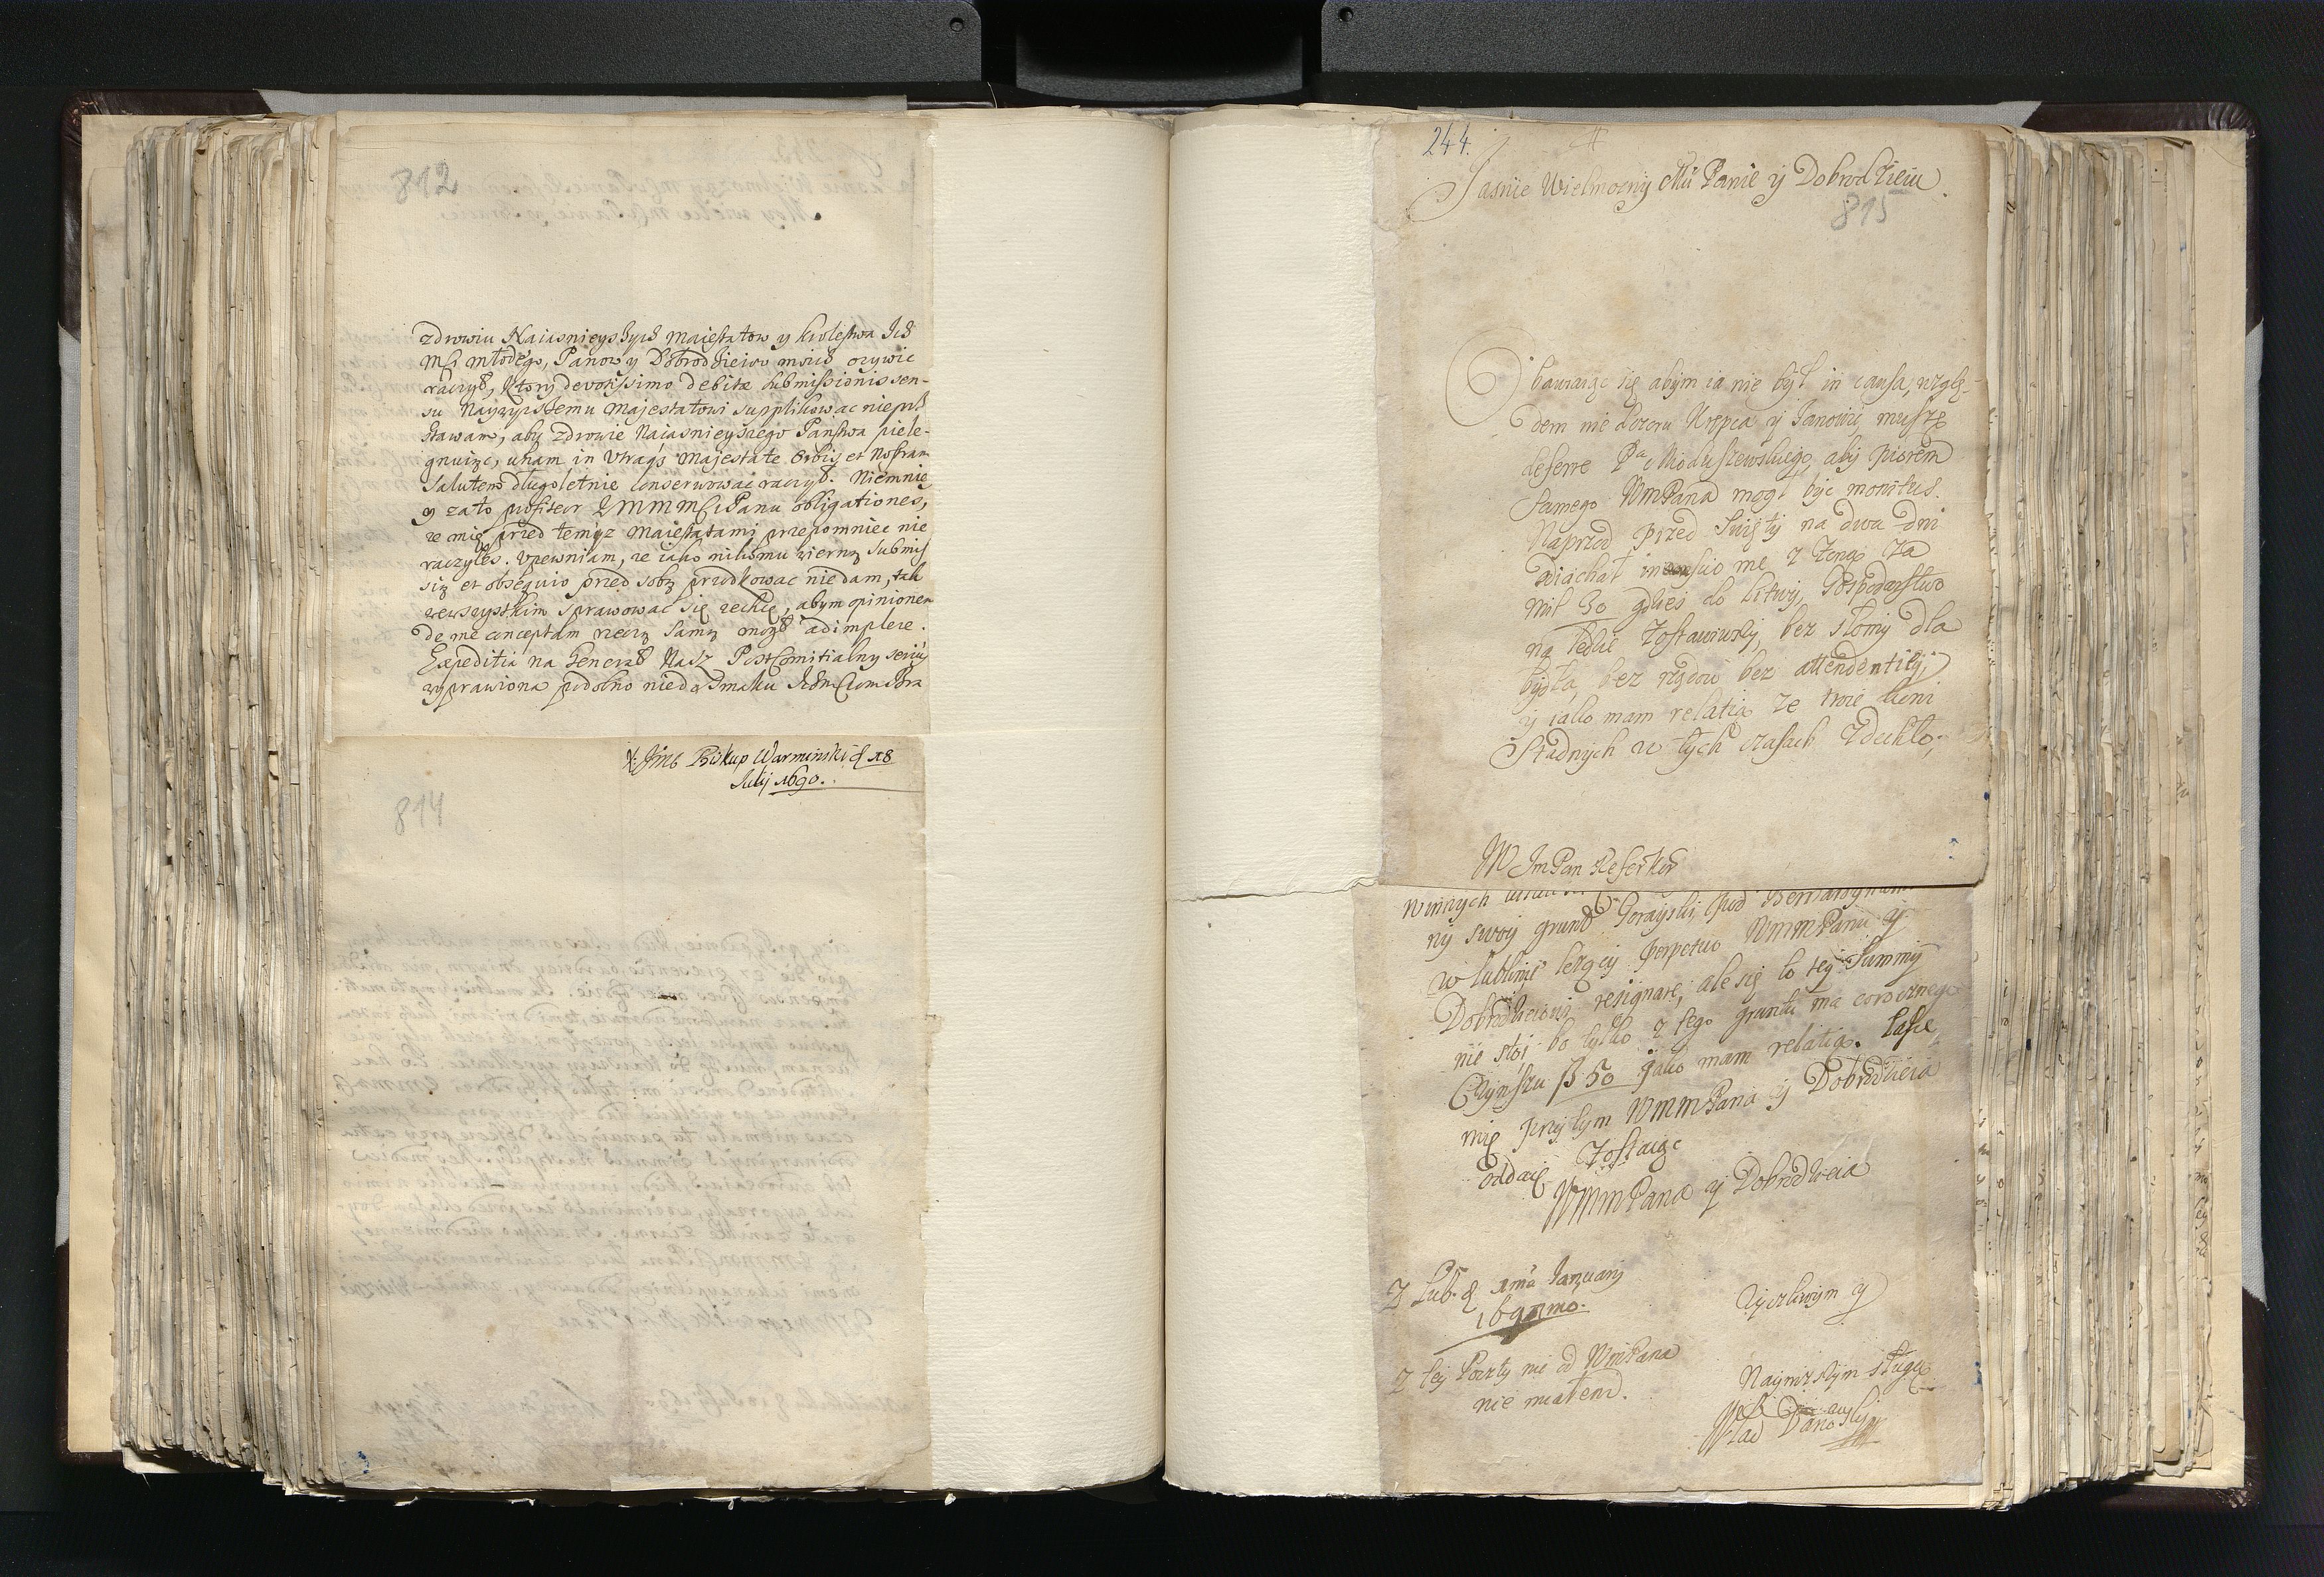 812
zdrowiu Naiasnieyszych Maiestatow y krolestwa Ich
Mci młodego, Panow y Dobrodzieiow moich ozywic
raczył, ktory devotissimo debitæ submissionis sen-
su Nayzyższemu Majestatowi supplikowac nie
stawam, aby zdrowie Naiasnieyszego Panstwa piele-
gnuiąc, unam in utraq3 Majestate Orbis et Nostram
Salutem długoletnie conserwować raczył. Niemniey
y zato profiteor WMMMsciPanu obligationes,
ze mię przed temyz Maiestatami przepomniec nie
raczyłes. Upewniam, ze iako nikomu wierną submis
sią et obsequio przed sobą przodkowac niedam, tak
zewszystkim sprawowac się zechcę, abym opinionem
de me conceptam rzeczą samą mogł adimplere.
Expeditia na Generał Nasz PostComitialny
wyprawiona podobno nieda smaku
X. Jmć Biskup Warminski d 18
Julij 1690.
814
244.
Jasnie Wielmozny Mći Panie y Dobrodzieiu.
815
Obawiaiąc się abym ia nie był in causa, wzglę-
dem nie dozoru Krępca y Janowij muszę
deferre Pa Moduszewskiego, aby piorem
samego WmPana mogł byc monitus.
Naprzod przed Swięty na dwa dni
wiachał inconsuo me z Zoną za
mil 30 gdzies do Litwy, Gospodarstwo
na Ledzie Zostawiwszy, bez słomy dla
bydła, bez rządow bez attendentiej,
y iako mam relatią ze troie
Stadnych w tych czasach Zdechło;
W JmPan Referker
Winnych
ny swoy grunt Gorayski, pod Bernardynami
w lublinie lezący perpetuo WmmPanu y
Dobrodzieiowi resignare, ale się to tey Summy
nie stoi bo tylko z tego gruntu ma corocznego
Czynszu fl 50 jako mam relatią. Łasce
mię przytym WmmPana y Dobrodzieia
oddaię Zostaiąc
WMmPana y Dobrodzieia
Z Lub. d 1ma January
1691mo.
Zyczliwym y
Z tey Poczty nic od WmPana
nie miałem.
Nayniższym sługą